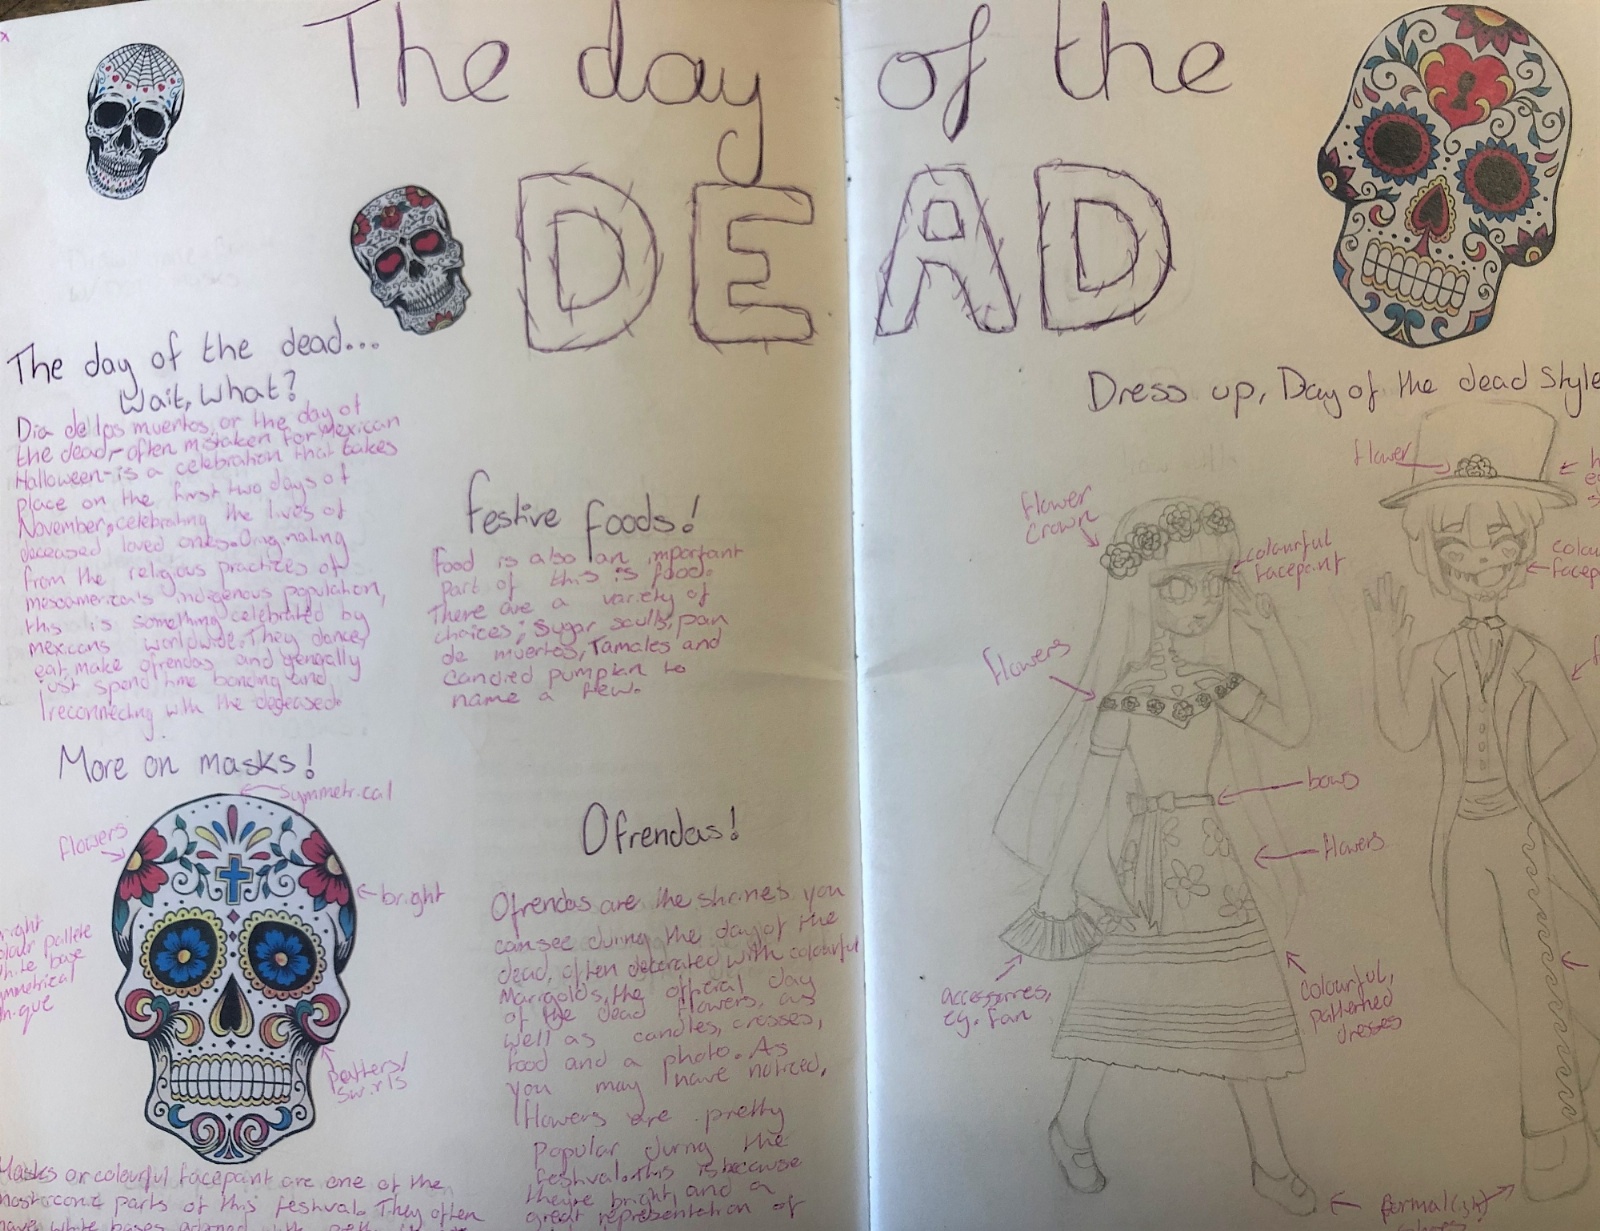 The day of the
DEAD
The day of the dead...
Wait, What?
Dia de los muertos, or the day of
the dead,-often mistaken for Mexican
Halloween-is a celebration that takes
place on the first two days of
November, celebrating the lives of
deceased loved ones. Originating
from the religious practices of
mesoamerica's indigenous population,
this is something celebrated by
mexicans worldwide. They dance,
eat, make ofrendas and generally
just spend time bonding and
reconnecting with the deceased.
Festive Foods!
Food is also an important
part of this is food.
There are a variety of
choices; Sugar sculls, pan
de muertos, Tamales and
Candied pumpkin to
name a few.
More on masks!
Symmetrical
flowers
bright
colour pallete
white base
symmetrical
patterns/
swirls
Masks or colourful facepaint are one of the
most iconic parts of this festival. They often
have white bases adorned with
Ofrendas!
Ofrendas are the shrines you
can see during the day of the
dead, often decorated with colourful
Marigolds, the official day
of the dead flowers, as
well as candles, crosses,
food and a photo. As
you may have noticed,
flowers are pretty
popular during the
festival. This is because
they're bright, and a
great representation of
Dress up, Day of the dead Style
flower
flower
crown
colourful
facepaint
flowers
bows
flowers
accessories,
eg. fan
colourful,
patterned
dresses
formal(ish)